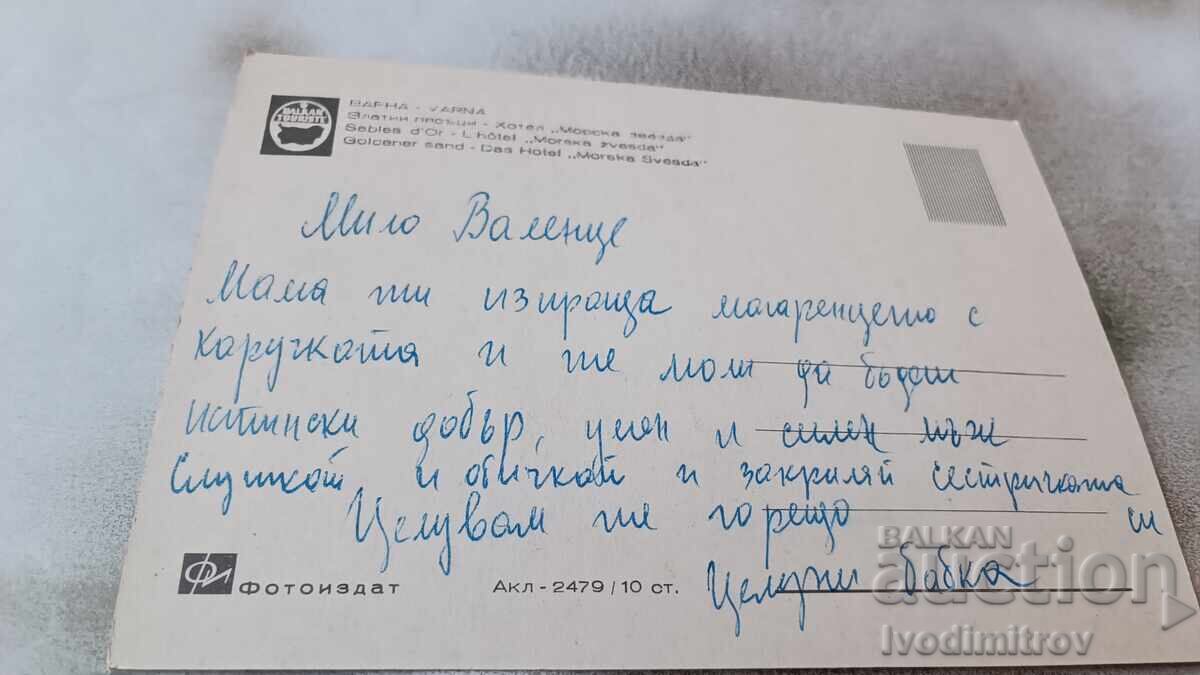 BALKAN TOURISTE
ВАРНА - VARNA
Златни пясъци - Хотел „Морска звезда"
Sables d'Or - L'hôtel „Morska zvesda"
Goldener sand - Das Hotel „Morska Svesda"
Мило Валенце
Мама ти изпраща магаренцето с
каручката и те моли да бъдеш
истински добър, умен и силен мъж
Слушкай и обичкай и закриляй сестричката
си
Целувам те горещо
Целуни бабка
Фотоиздат
Акл - 2479 / 10 ст.
BALKAN
auction
Ivodimitrov